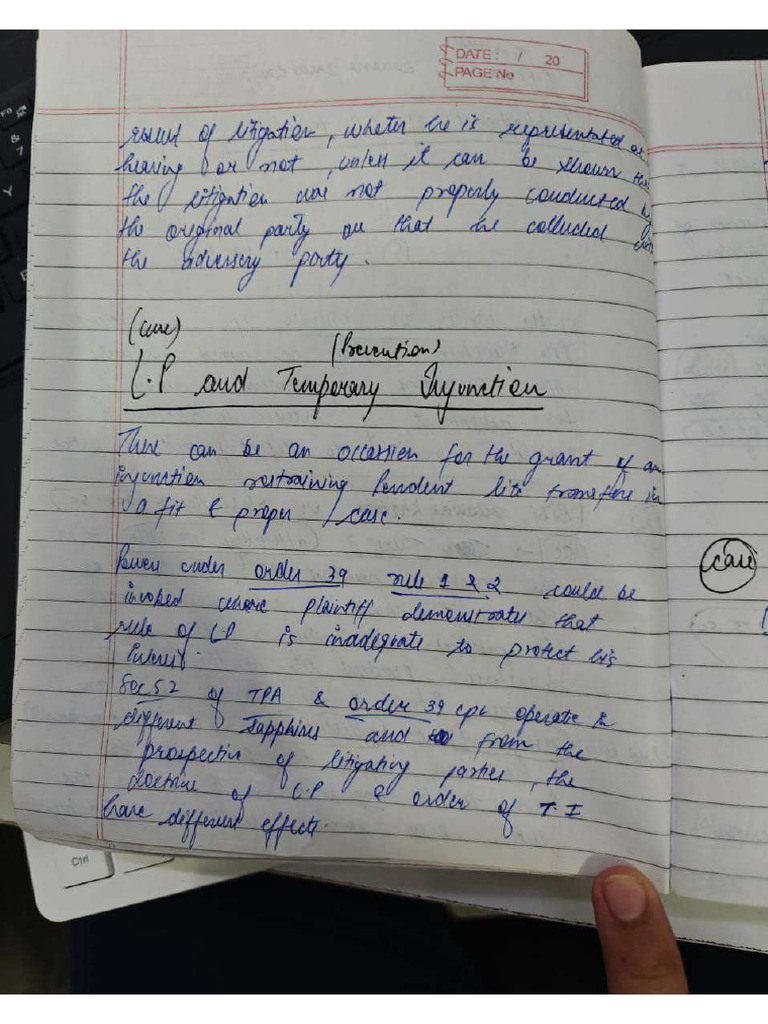 DATE: / 20
PAGE No
result of litigation, wheter he is representated or
hearing or not, unless it can be shown that
the litigation was not properly conducted by
the original party or that he colluded with
the adversery party.
(cure)
(Prevention)
L.P and Temporary Injunction
There can be an occassion for the grant of an
injunction restraining pendent lite transfere in
a fit & proper case.
Power under order 39 rule 1 & 2 could be
invoked where plaintiff demonstrates that
rule of LP is inadequate to protect his
interest.
Sec 52 of TPA & order 39 cpc operate in
different sapphires and from the
prospective of litigating parties, the
doctrine of L.P & order of T I
have different effects.
case
Ctrl
Y
&
7